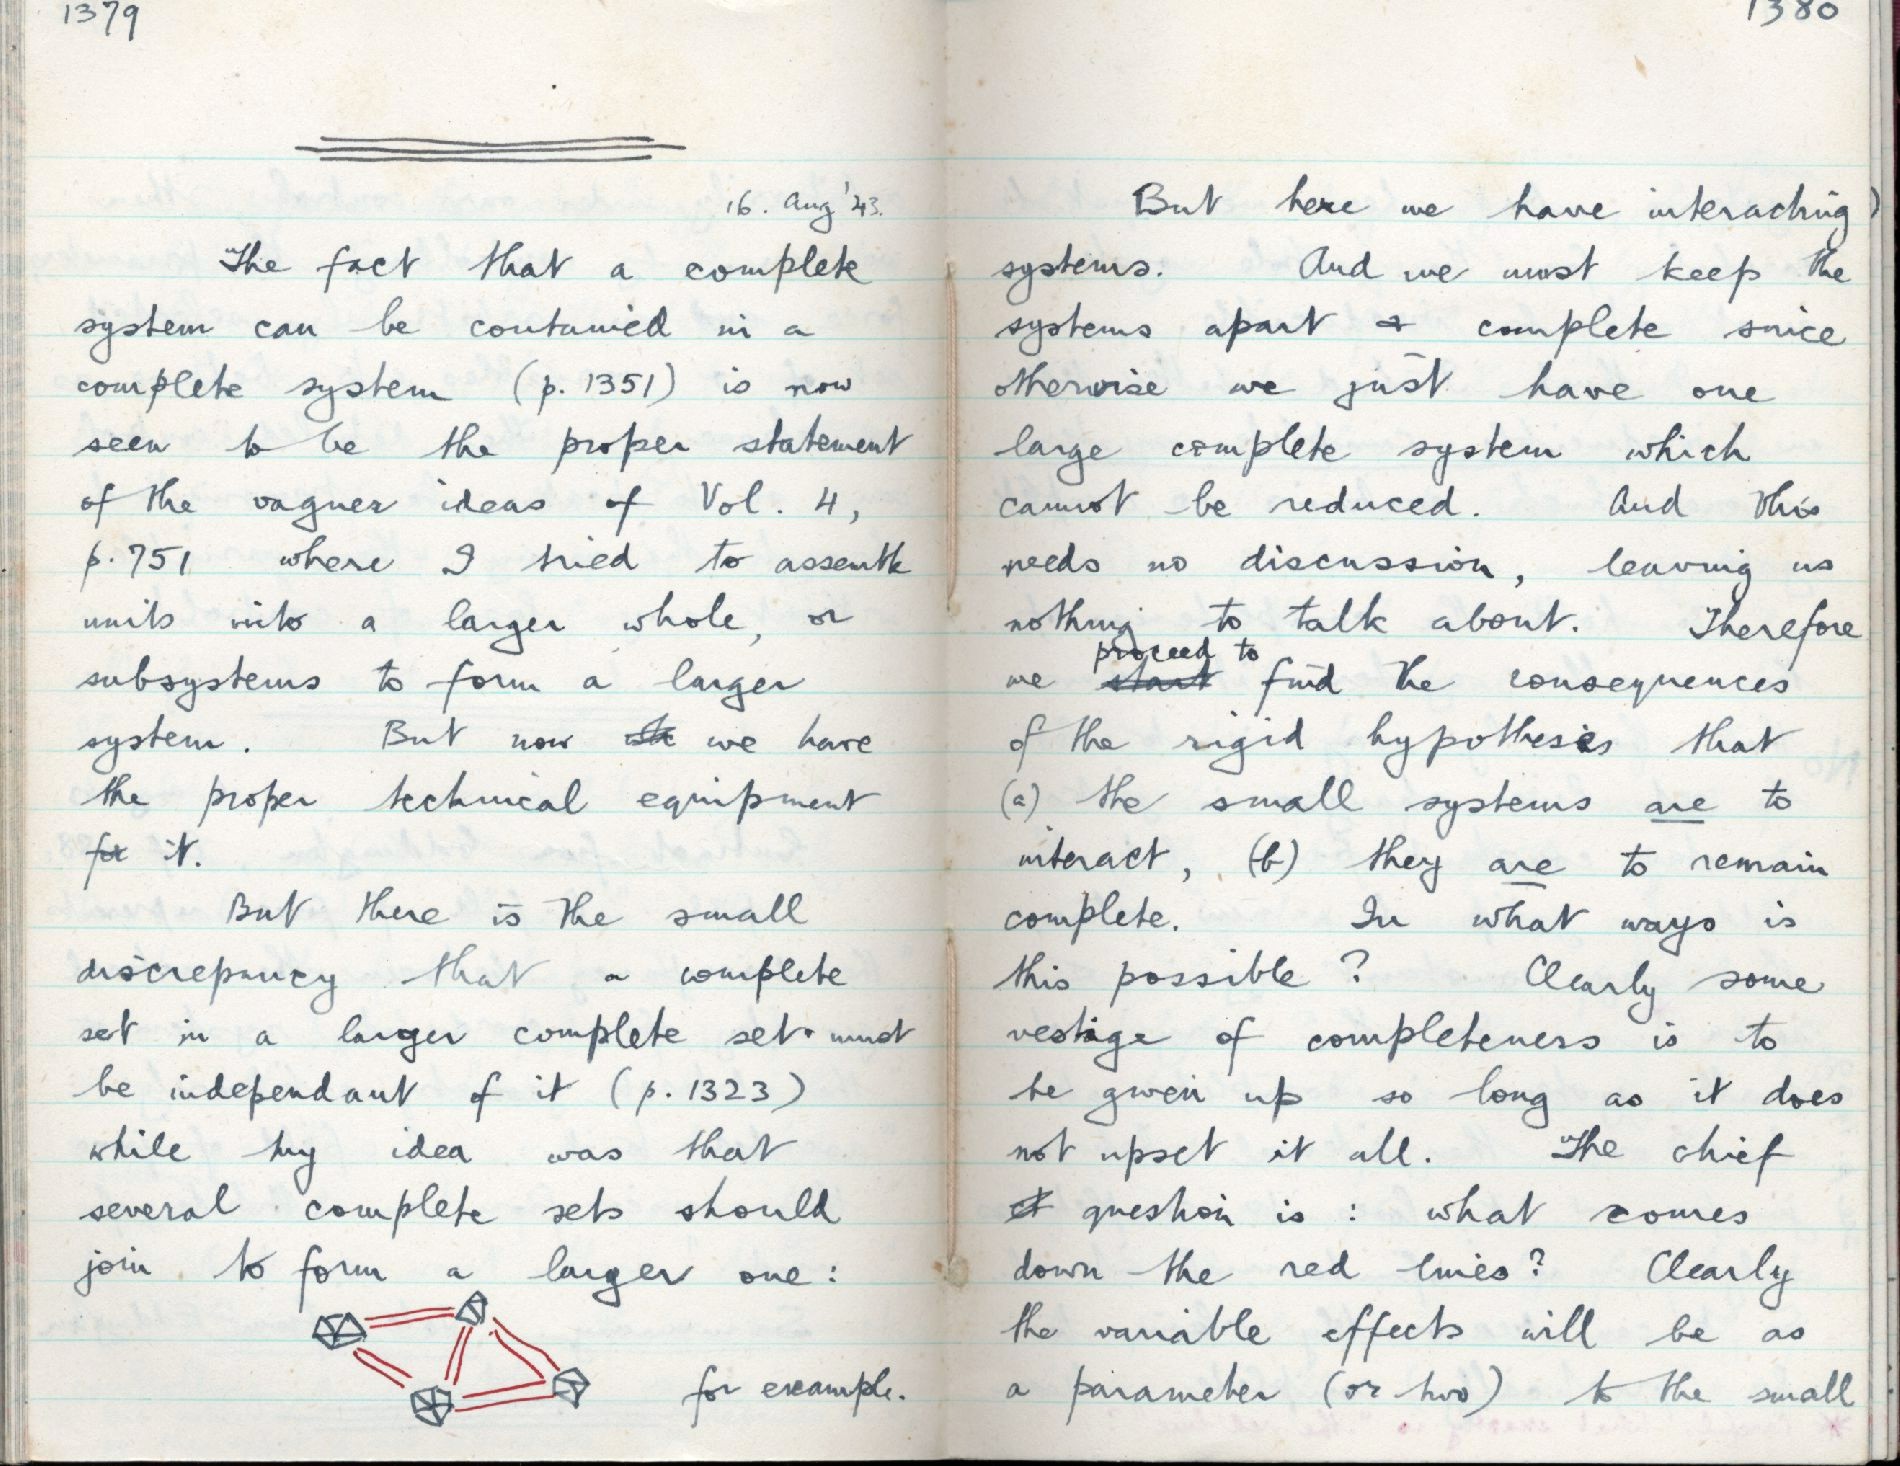 1379
16. Aug '43.
The fact that a complete
system can be contained in a
complete system (p. 1351) is now
seen to be the proper statement
of the vaguer ideas of Vol. 4,
p. 751 where I tried to assemble
units into a larger whole, or
subsystems to form a larger
system. But now we have
the proper technical equipment
for it.
But there is the small
discrepancy that a complete
set in a larger complete set must
be independant of it (p. 1323)
while my idea was that
several complete sets should
join to form a larger one:
for example.
1380
But here we have interacting
systems. And we must keep the
systems apart & complete since
otherwise we just have one
large complete system which
cannot be reduced. And this
needs no discussion, leaving us
nothing to talk about. Therefore
proceed to
we start find the consequences
of the rigid hypothesis that
(a) the small systems are to
interact, (b) they are to remain
complete. In what ways is
this possible? Clearly some
vestige of completeness is to
be given up so long as it does
not upset it all. The chief
question is: what comes
down the red lines? Clearly
the variable effects will be as
a parameter (or two) to the small